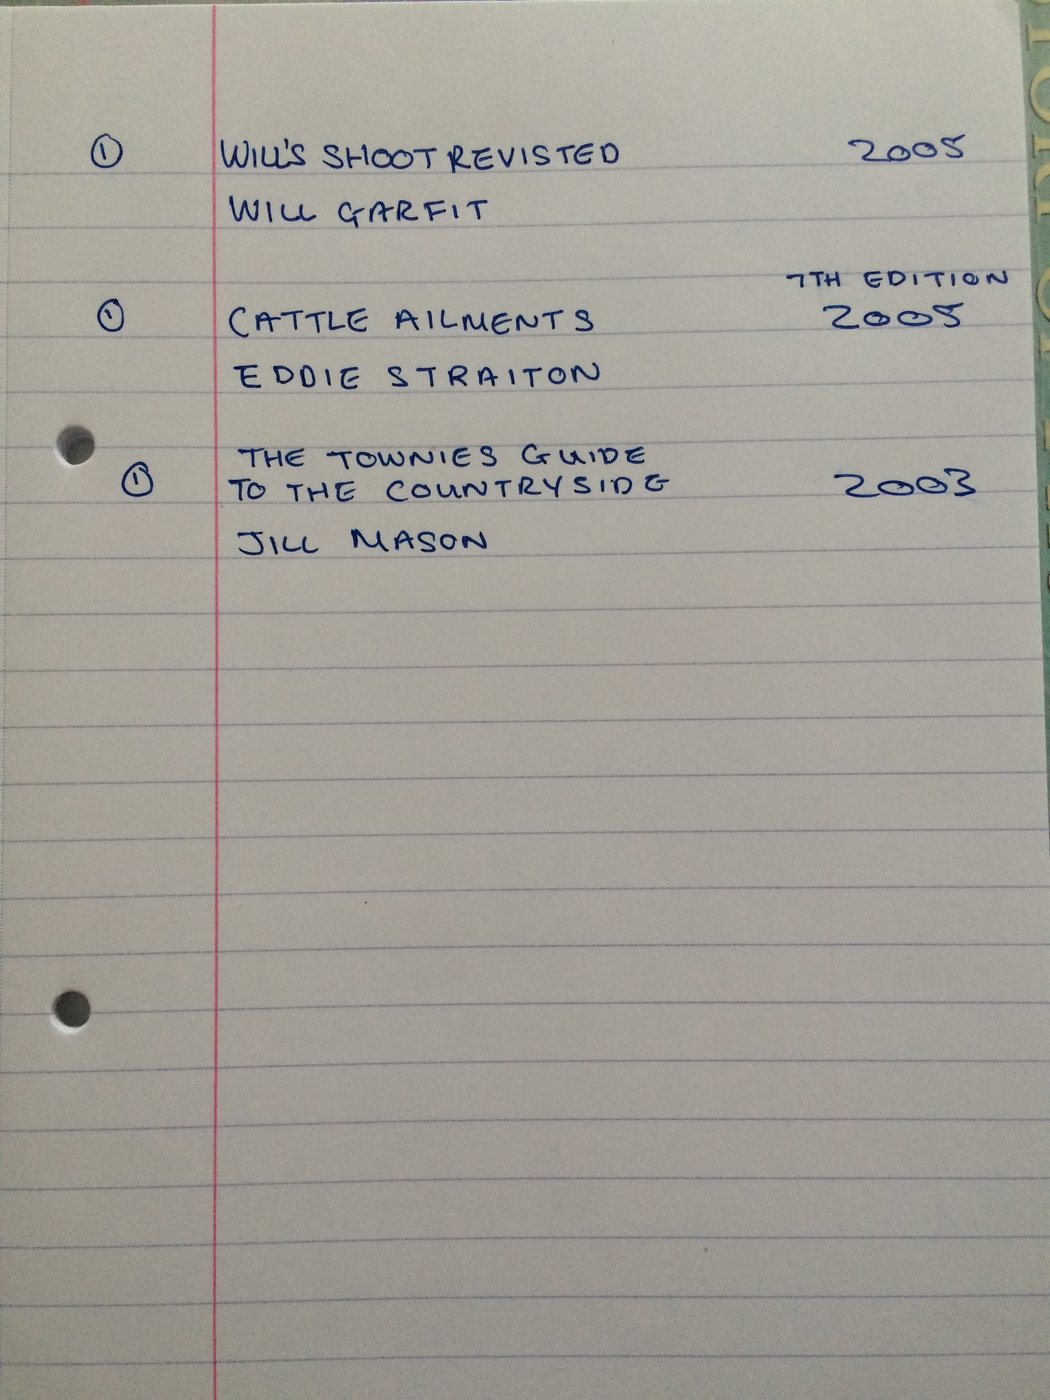 ① WILL'S SHOOT REVISTED 2005
WILL GARFIT
7TH EDITION
① CATTLE AILMENTS 2005
EDDIE STRAITON
THE TOWNIES GUIDE
① TO THE COUNTRYSIDE 2003
JILL MASON